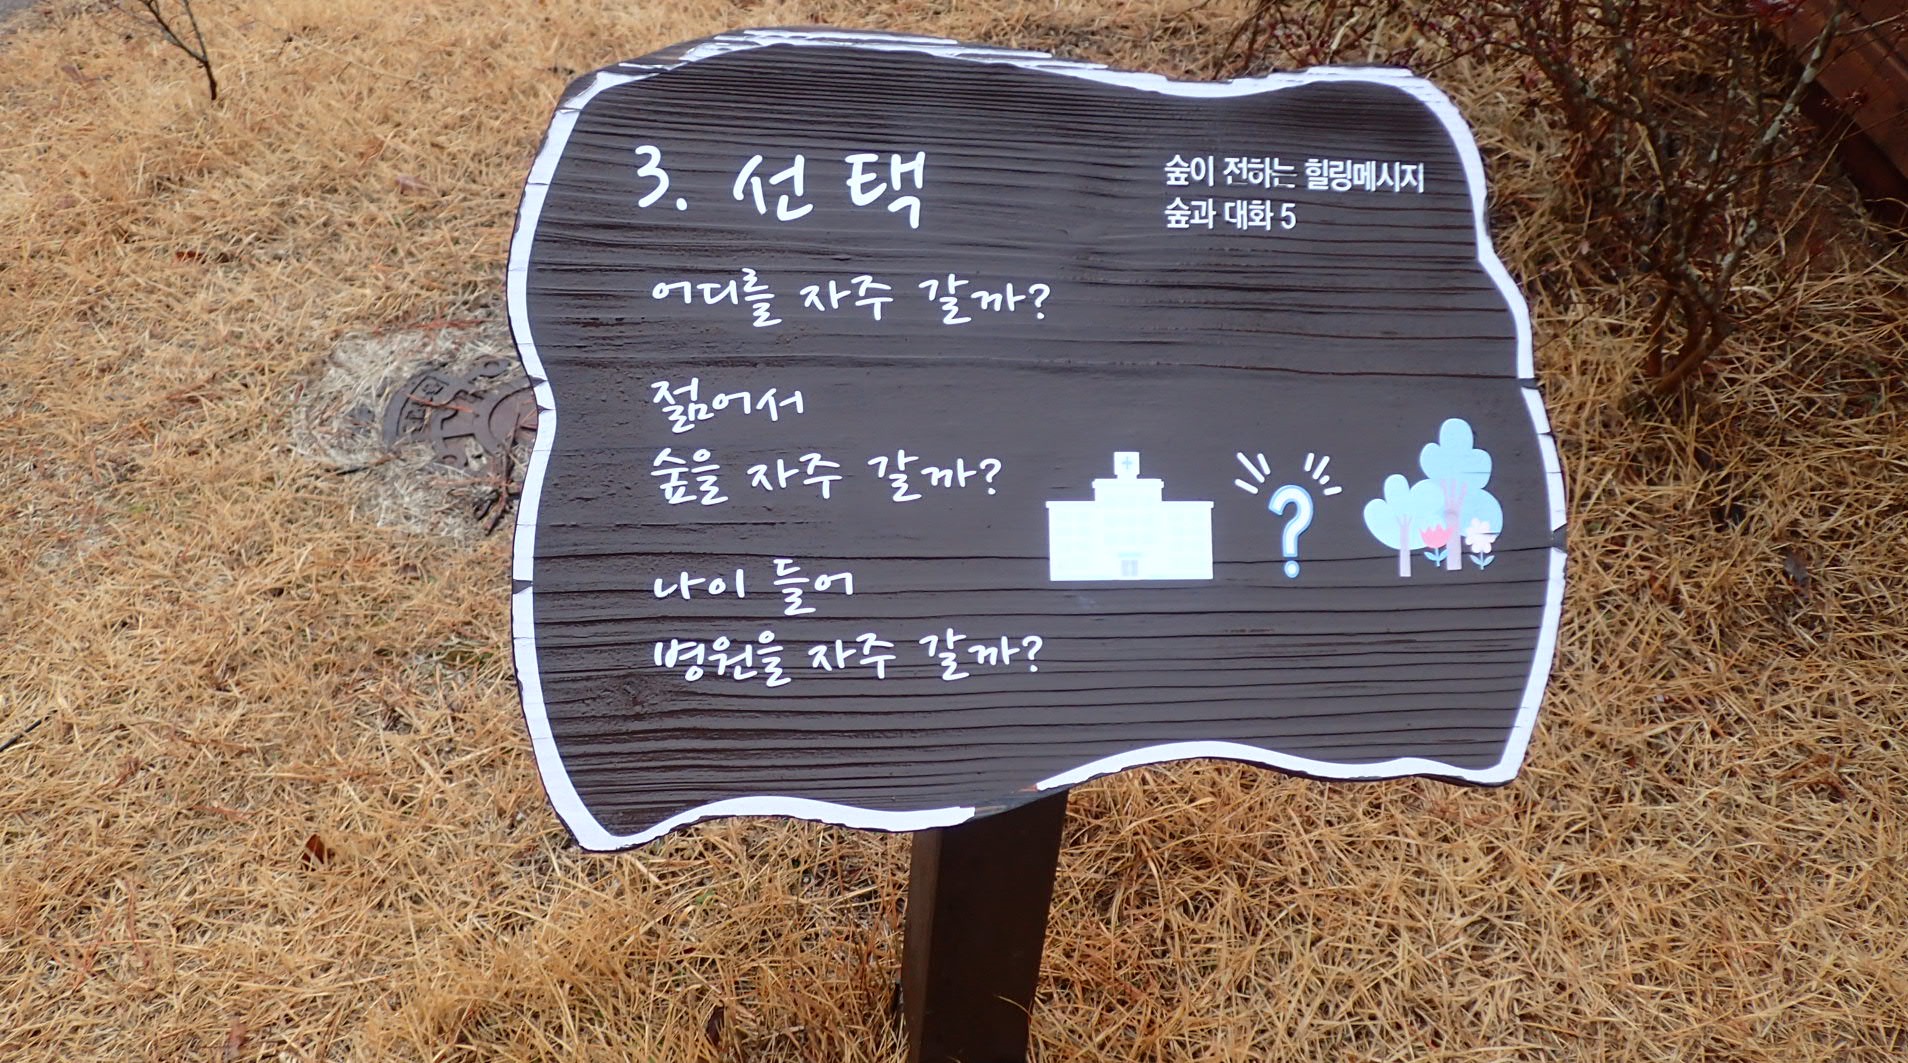 3. 선택
숲이 전하는 힐링메시지
숲과 대화 5
어디를 자주 갈까?
젊어서
숲을 자주 갈까?
나이 들어
병원을 자주 갈까?